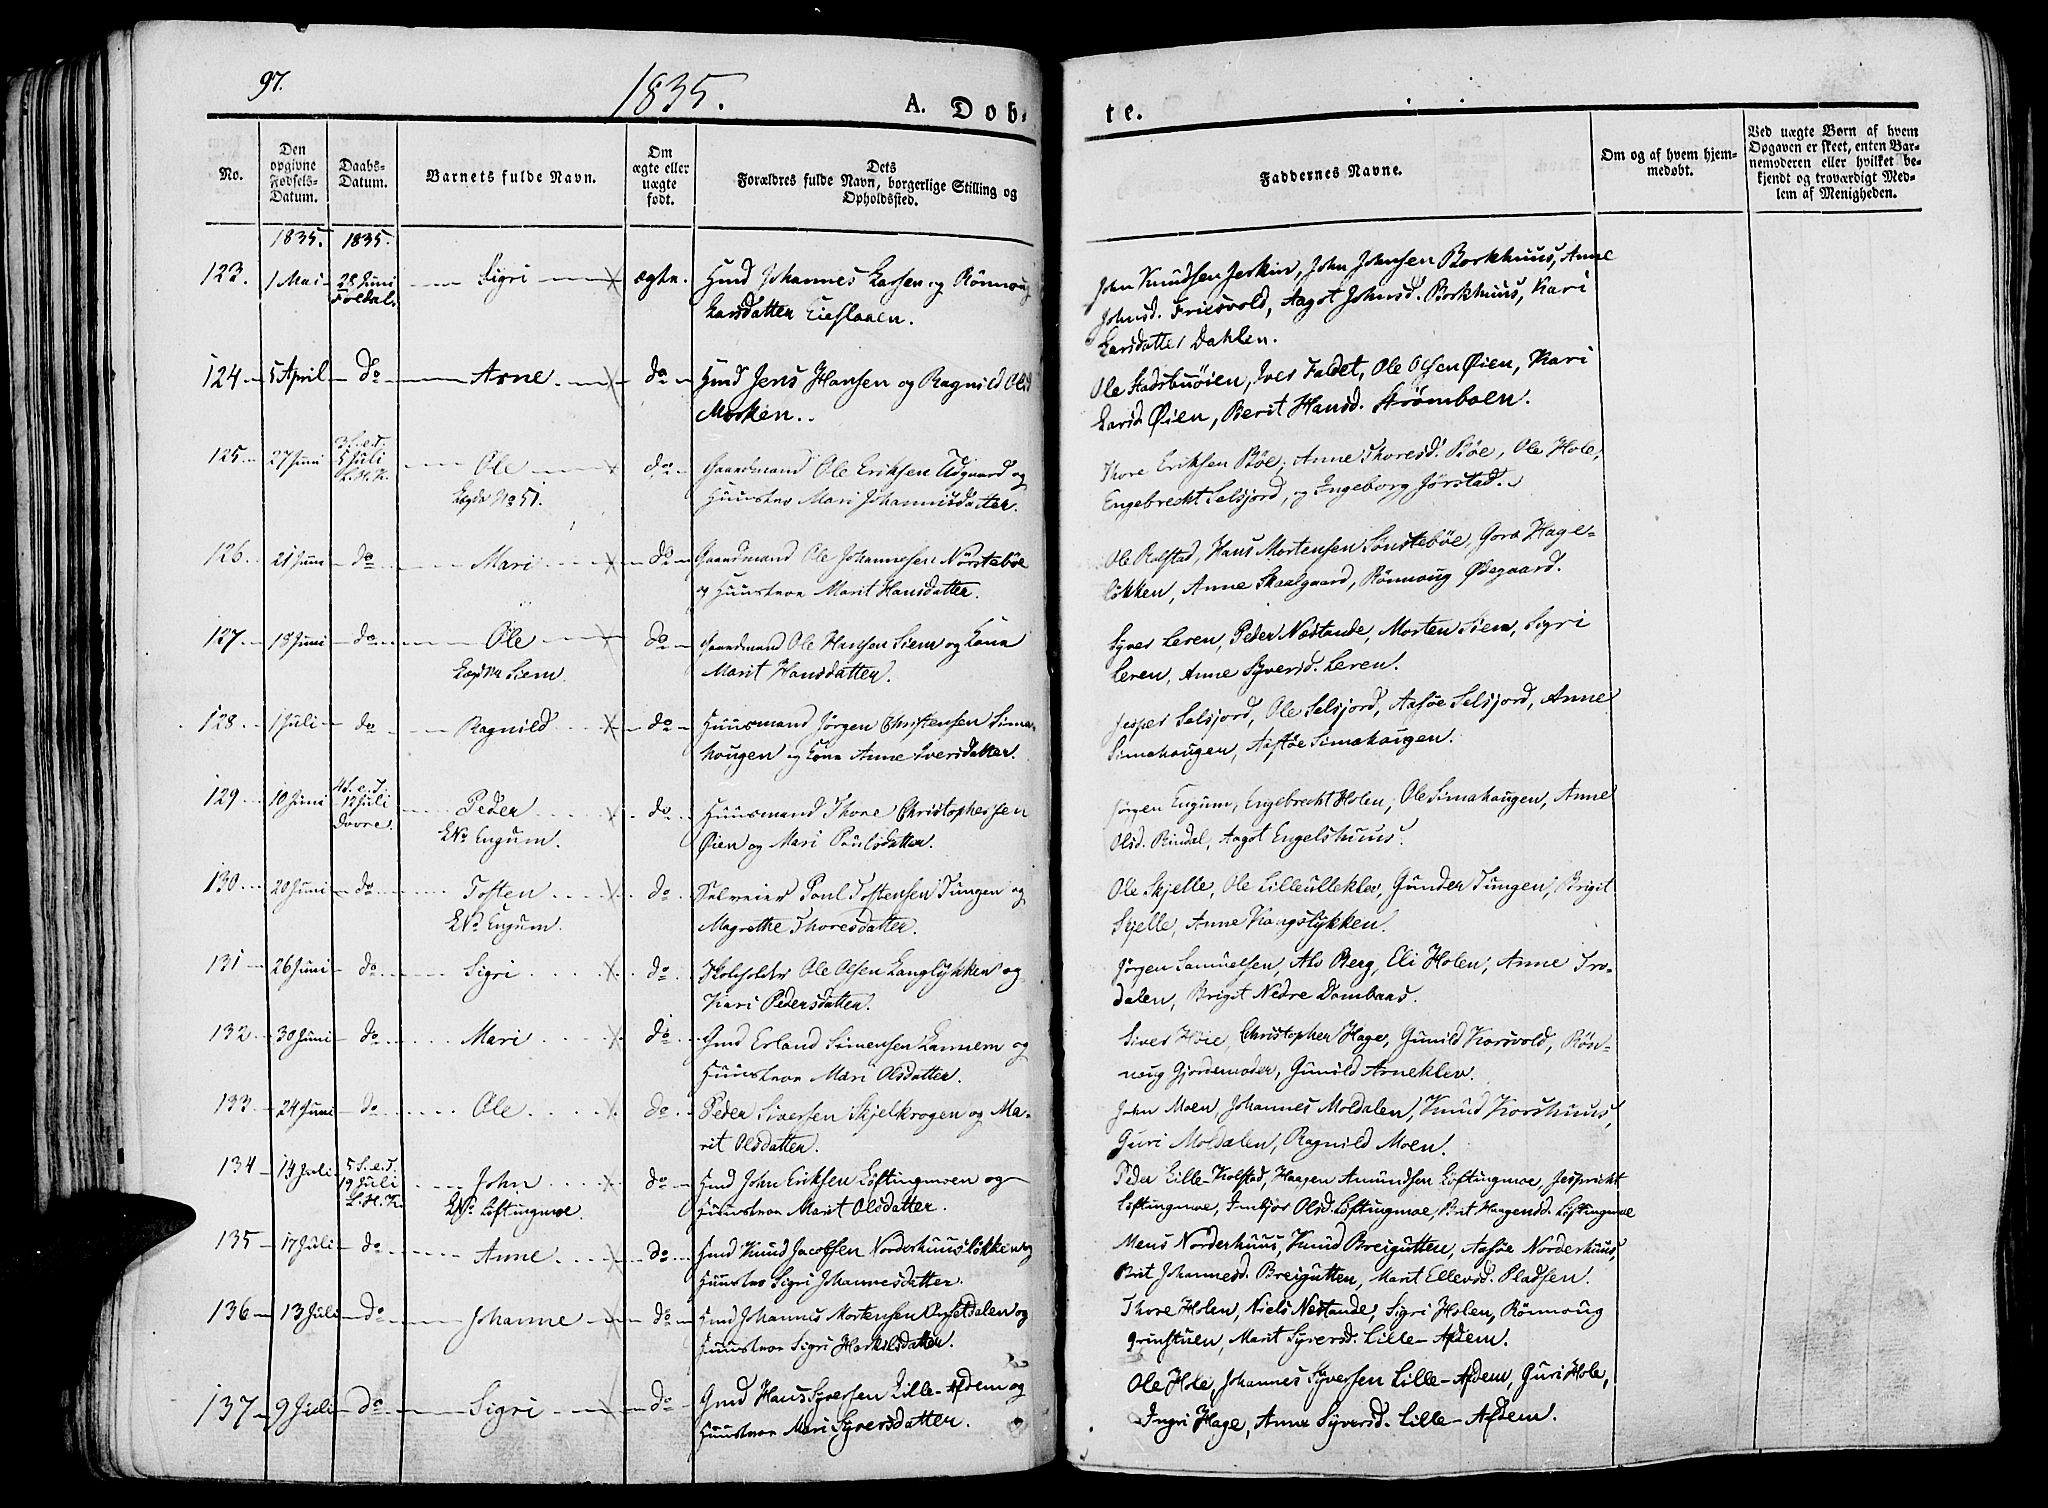 97.
1835.
A. Dob-
te.
No.
Den opgivne Fødsels-Datum.
Daabs-Datum.
Barnets fulde Navn.
Om ægte eller uægte født.
Dets Forældres fulde Navn, borgerlige Stilling og Opholdssted.
Faddernes Navne.
Om og af hvem hjem-medøbt.
Ved uægte Børn af hvem Opgaven er skeet, enten Bar-nemoderen eller hvilket be-kjendt og troværdigt Med-lem af Menigheden.
1835. 1835.
123. 1 Mai 28 Juni Foldal. Sigri ægte. Hmd Johannes Larsen og Rönnoug
Larsdatter
John Knudsen Jerkin, John Johnsen Borkhuus, Anne
Johnsd. Friesvold, Aagot Johnsd. Borkhuus, Kari
Larsdatter Dahlen.
124 5 April do Arne do Hmd Jens Hansen og Ragnild Olsd
Morken.
Ole Stadsbuöien, Iver Faldet, Ole Olsen Øien, Kari
Larsd. Øien, Berit Hansd. Strømboen.
125 27 Juni 3 S. e. T. 5 Juli L.H.K. Ole do Gaardmand Ole Eriksen Udgaard og
Lægds No 51. Huustroe Mari Johannisdatter.
Thore Eriksen Böe, Anne Thoresd. Böe, Ole Hole,
Engebrecht Selsjord, og Ingeborg Jörstad.
126 21 Juni do Mari do Gaardmand Ole Johannesen Nörstebøe
og Huustroe Marit Hansdatter.
Ole Rolstad, Hans Mortensen Sönstebøe, Goro Hage-
lökken, Anne Skaalgaard, Rönnoug Ødegaard.
127 18 Juni do Ole do Gaardmand Ole Hansen Siem og Kone
Lægd No Siem. Marit Hansdatter.
Syver Leren, Peder Nestande, Morten Siem, Sigri
Leren, Anne Syversd. Leren.
128 1 Juli do Ragnild do Huusmand Jörgen Christensen Sima-
hougen og Kone Anne Iversdatter.
Jesper Selsjord, Ole Selsjord, Aasöe Selsjord, Anne
Simahougen, Aasöe Simahougen.
129 10 Juni 4 S. e. T. 12 Juli Dovre. Peder do Huusmand Thore Christophersen
LNo Engum. Øien og Mari Paulsdatter.
Jörgen Engum, Engebrecht Holen, Ole Simahougen, Anne
Olsd. Rindal, Aagot Engelshuus.
130 20 Juni do Tosten do Selveier Poul Tostensen Tungen og
LNo Engum. Magrethe Thoresdatter.
Ole Skjelle, Ole Lilleulleklev, Gunder Tungen, Brigit
Skjelle, Anne Kongslykken.
131 26 Juni do Sigri do Skoleholder Ole Olsen Langlykken og
Kari Pedersdatter.
Jörgen Samuelsen, Als Berg, Eli Holen, Anne Tro-
dalen, Brigit Nedre Dombaas.
132 30 Juni do Mari do Gmd Erland Simensen Lannem og
Huustroe Mari Olsdatter.
Siver Høie, Christopher Hage, Gunild Korsvold, Rön-
noug Gjordemoder, Gunild Arneklev.
133 24 Juni do Ole do Peder Siversen Skjelkrogen og Ma-
rit Olsdatter.
John Moen, Johannes Moldalen, Knud Korshuus,
Guri Moldalen, Ragnild Moen.
134 14 Juli 5 S. e. T. 19 Juli L.H.K. John do Hmd John Eriksen Löftingmoen og
LNo Löftingmoe. Huustroe Marit Olsdatter.
Peder Lille-Kolstad, Haagen Amundsen Löftingmoe, Jespricht
Löftingmoe, Imbjör Olsd. Löftingmoe, Brit Haagensd. Löftingmoe
135 17 Juli do Anne do Hmd Knud Jacobsen Norderhuuslökken og
Huustroe Sigri Johannesdatter.
Mons Norderhuus, Knud Breigutten, Aasöe Norderhuus,
Brit Johannesd. Breigutten, Marit Ellevsd. Pladsen.
136 13 Juli do Johanne do Hmd Johannis Mortensen og
Huustroe Sigri
Thore Holen, Niels Nestande, Sigri Holen, Rönnoug
Grinstuen, Marit Syversd. Lille-Afdem.
137 9 Juli do Sigri do Gmd Hans Syversen Lille-Afdem og
Huustroe Mari Syversdatter.
Ole Hole, Johannes Syversen Lille-Afdem, Guri Hole,
Ingri Hage, Anne Syversd. Lille-Afdem.